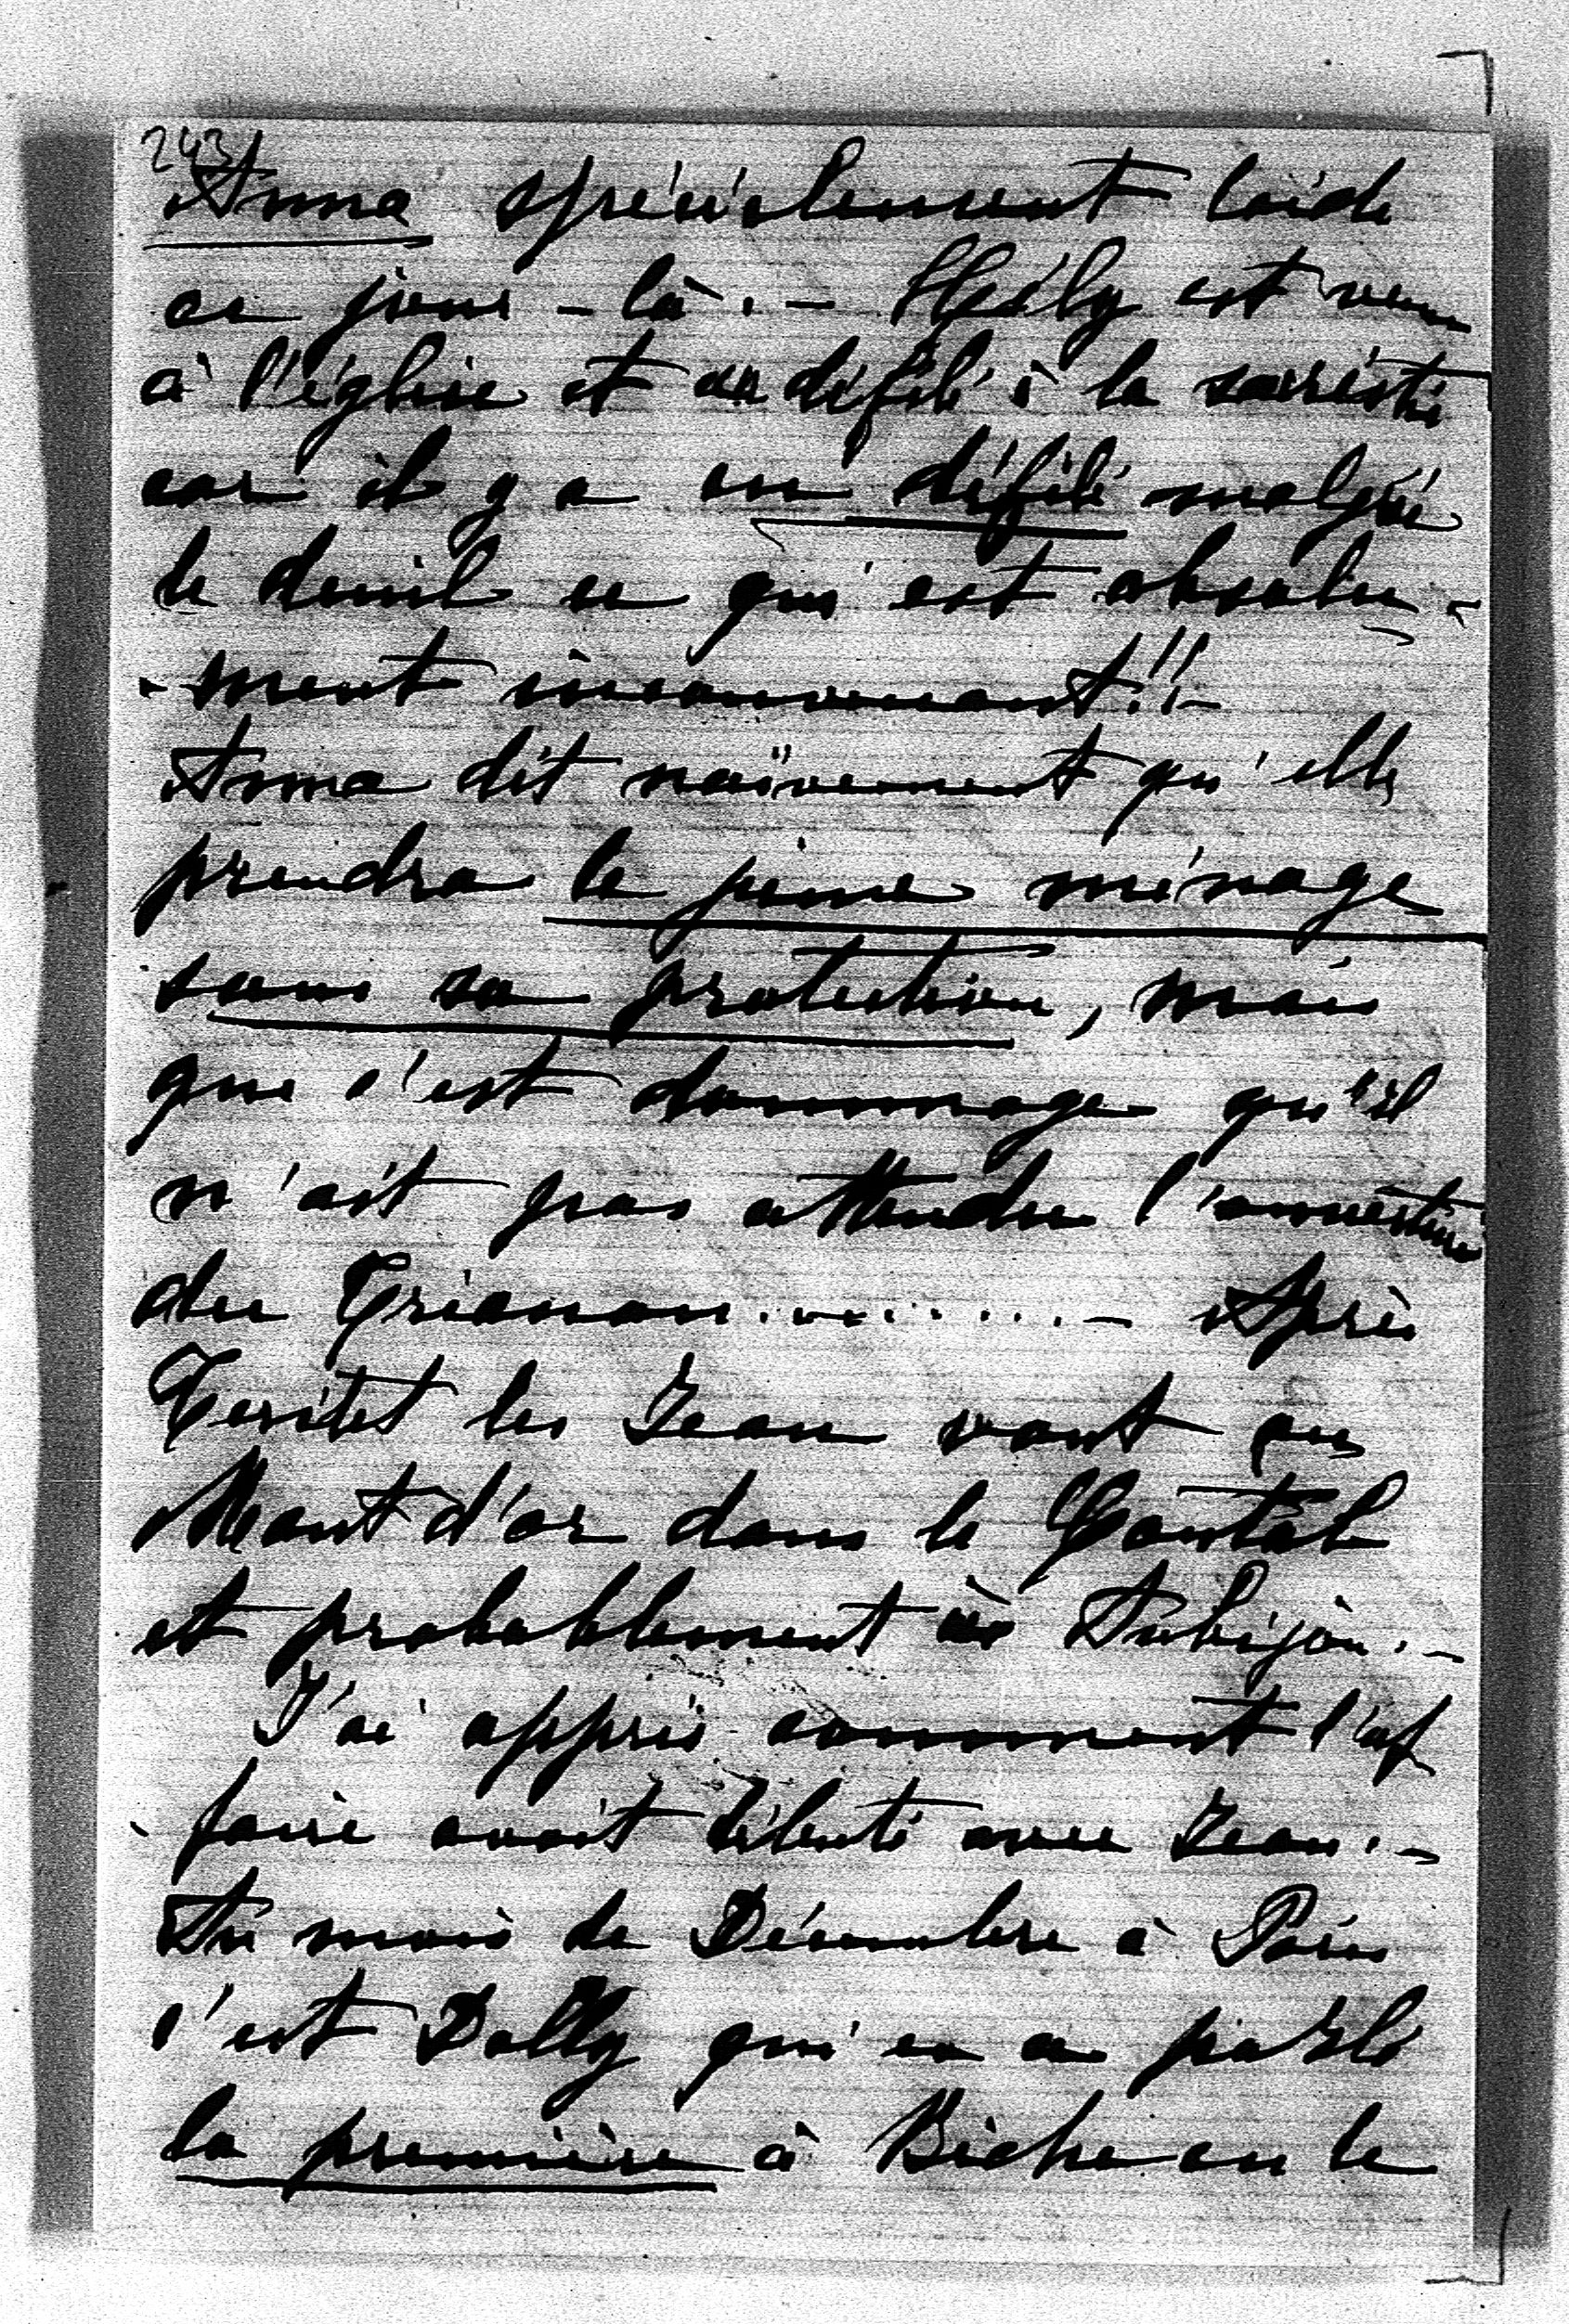 243
Anna spécialement laide
ce jour-là. — Hély est venu
à l'église et a défilé à la sacristie
car il y a eu défilé malgré
le deuil ce qui est absolu-
-ment inconvenant!! —
Anna dit naïvement qu'elle
prendra le jeune ménage
sous sa protection, mais
que c'est dommage qu'il
n'ait pas attendu l'ouverture
du Trianon.......... — Après
Territet les Jean vont au
Mont d'or dans le Cantal
et probablement à Aubijou. —
J'ai appris comment l'af
-faire avait débuté avec Jean. —
Au mois de Décembre à Paris
c'est Dolly qui en a parlé
la première à Biche en le